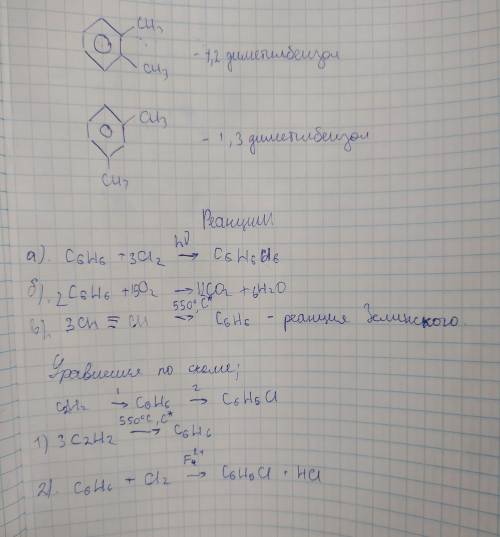 CH3
CH3
- 1,2 диметилбензол
CH3
- 1,3 диметилбензол
CH3
Реакции
а). C6H6 + 3Cl2 hν → C6H6Cl6
б). 2C6H6 + 15O2 → 12CO2 + 6H2O
в). 3CH ≡ CH 550°, C* → C6H6 - реакция Зелинского.
Уравнения по схеме;
C2H2 1 → C6H6 2 → C6H5Cl
1) 3C2H2 550°C, C* → C6H6
2). C6H6 + Cl2 → C6H5Cl + HCl